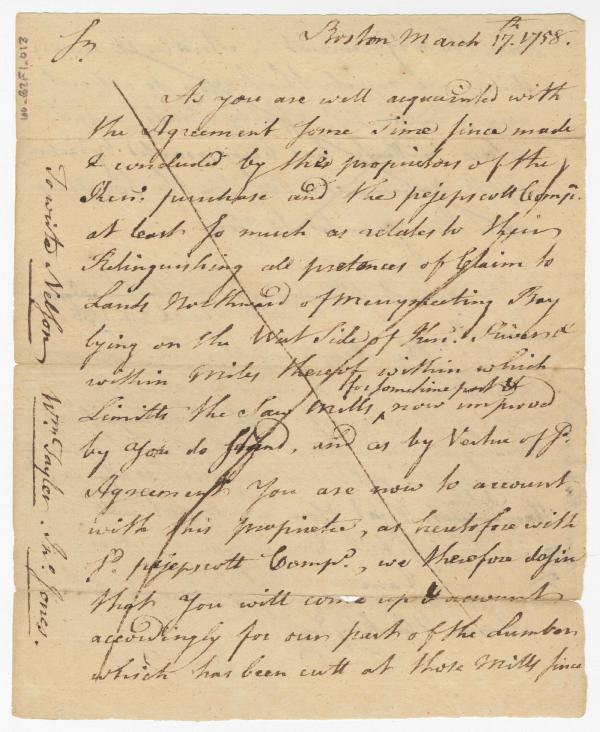 Boston March 17th. 1758.
Sr.
As you are well acquainted with
the Agreement some Time since made
& concluded by this proprietors of the
Ken: purchase and the pejepscott Compa.
at least so much as relates to their
Relinquishing all pretences of Claim to
Lands Northward of Merrymeeting Bay
lying on the West Side of Ken: River &
within Miles thereof within which
for sometime past &
Limitts the Saw Mills, now improved
by You do stand, and as by Vertue of sd.
Agreement You are now to account
with this proprietee, as heretofore with
sd. pejepscott Compa., we therefore desire
that You will come up & account
accordingly for our part of the Lumber
which has been cutt at those Mills since
To write Nelson
Wm. Tayler. Jno. Jones.